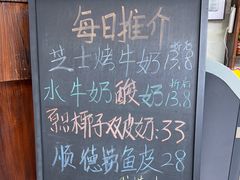 每日推介
芝士烤牛奶 折后 13.8
水牛奶酸奶 折后 13.8
原只椰子双皮奶:33
顺德捞鱼皮 28